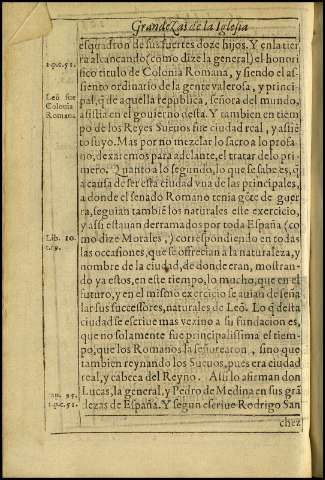 Grandezas de la Iglesia
esquadron de sus fuertes doze hijos. Y en la tier
ra alcançando (como dize la general) el honori
1.p.c.51.
fico titulo de Colonia Romana, y siendo el as-
siento ordinario de la gente valerosa, y princi-
Leõ fue
Colonia
Romana
pal, q̃ de aquella republica, señora del mundo,
assistia en el gouierno desta. Y tambien en tiem
po de los Reyes Sueuos fue ciudad real, y assiẽ
to suyo. Mas por no mezclar lo sacro a lo profa-
no, dexaremos para adelante, el tratar de lo pri-
mero. Quanto a lo segundo, lo que se sabe es, q̃
a causa de ser esta ciudad vna de las principales,
a donde el senado Romano tenia gẽte de guer
ra, seguian tambiẽ los naturales este exercicio,
y assi estauan derramados por toda España (co
Lib. 10.
mo dize Morales,) correspondiendo en todas
las occasiones, que se offrecian a la naturaleza, y
nombre de la ciudad, de donde eran, mostran-
do ya estos, en este tiempo, lo mucho, que en el
futuro, y en el mismo exercicio se auian de seña
lar sus successores, naturales de Leõ. Lo q̃ desta
ciudad se escriue mas vezino a su fundacion es,
que no solamente fue principalissima el tiem-
po, que los Romanos la señorearon, sino que
tambien reynando los Sueuos, pues era ciudad
real, y cabeça del Reyno. Assi lo afirman don
95.
1.p.c.51.
Lucas, la general, y Pedro de Medina en sus grã
dezas de España. Y segun escriue Rodrigo San
chez